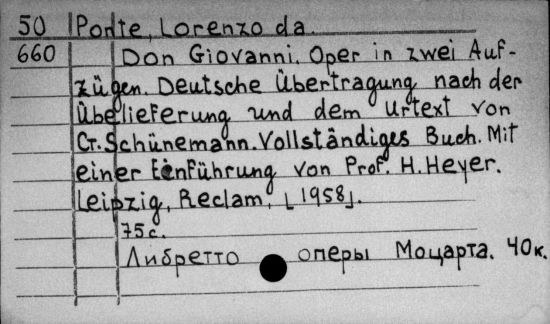 50 Ponte, Lorenzo da.
660 Don Giovanni. Oper in zwei Auf-
zügen. Deutsche Übertragung nach der
Übelieferung und dem Urtext von
G. Schünemann. Vollständiges Buch. Mit
einer Einführung von Prof. H. Heyer.
Leipzig, Reclam, [1958].
75c.
Либретто оперы Моцарта. 40к.